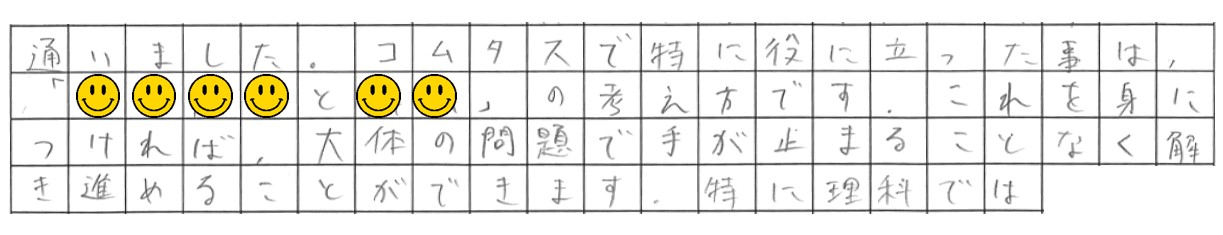 通いました。コムタスで特に役に立った事は,
「と」の考え方です.これを身に
つければ,大体の問題で手が止まることなく解
き進めることができます.特に理科では